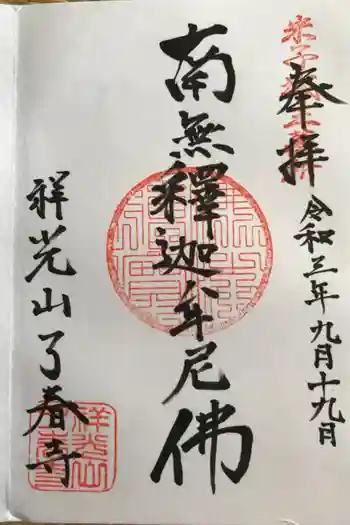 奉拝
令和三年九月十九日
南無釋迦牟尼佛
祥光山了春寺